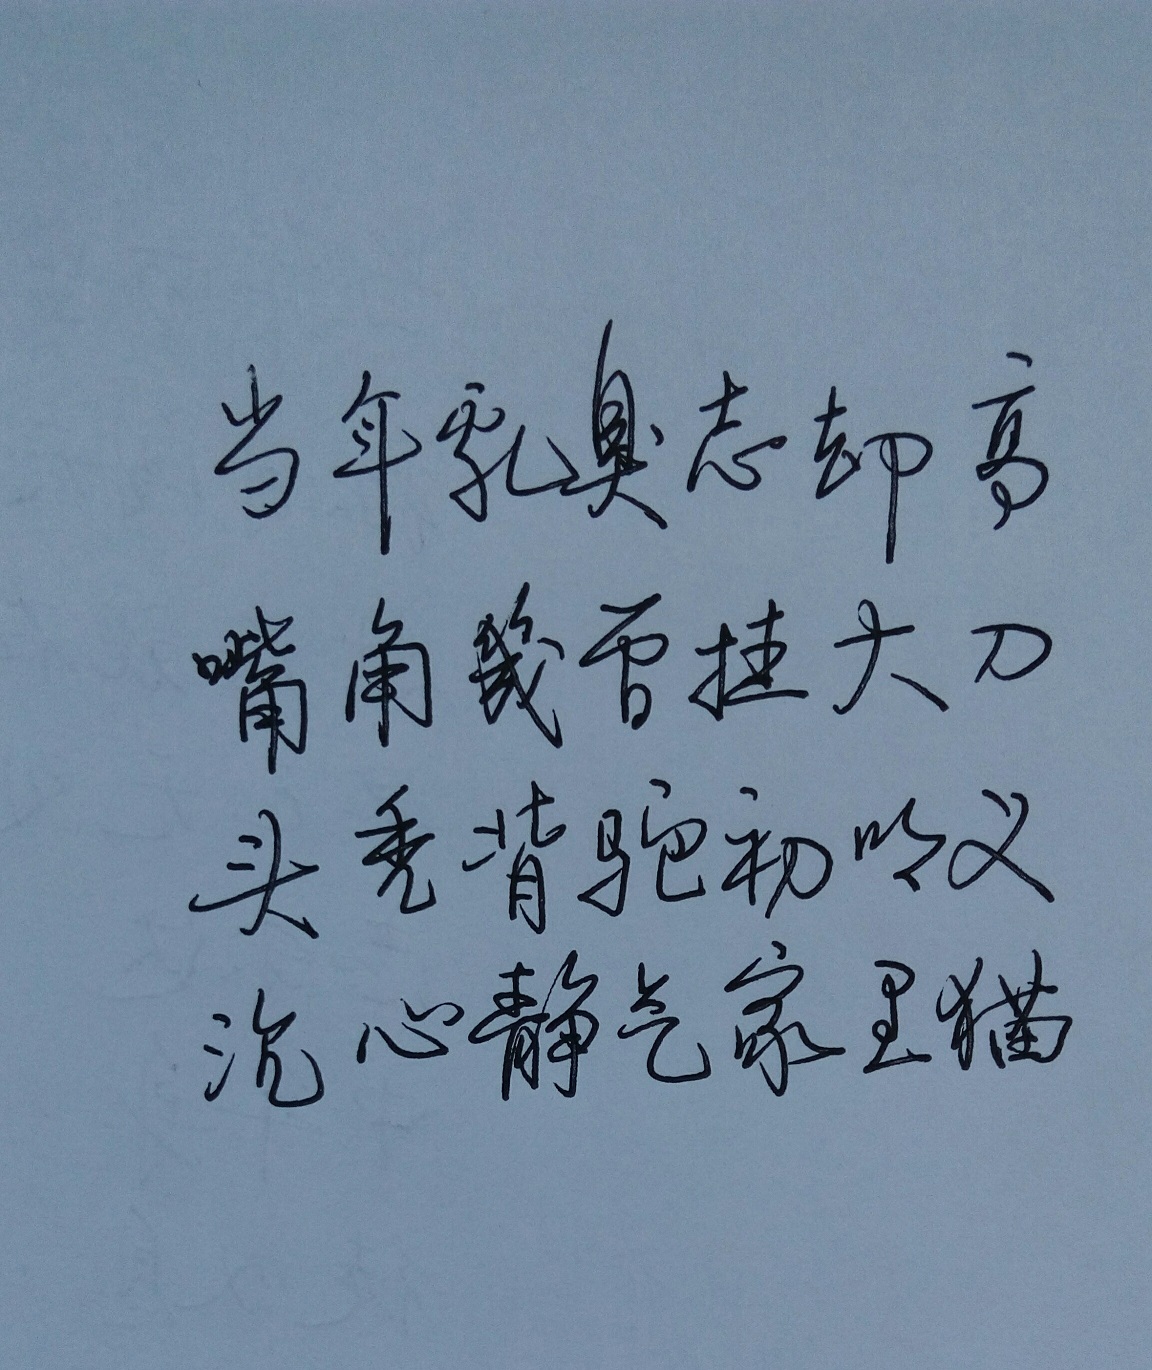 当年乳臭志却高
嘴角幾曾挂大刀
头秃背驼初吟义
沉心静气家里猫